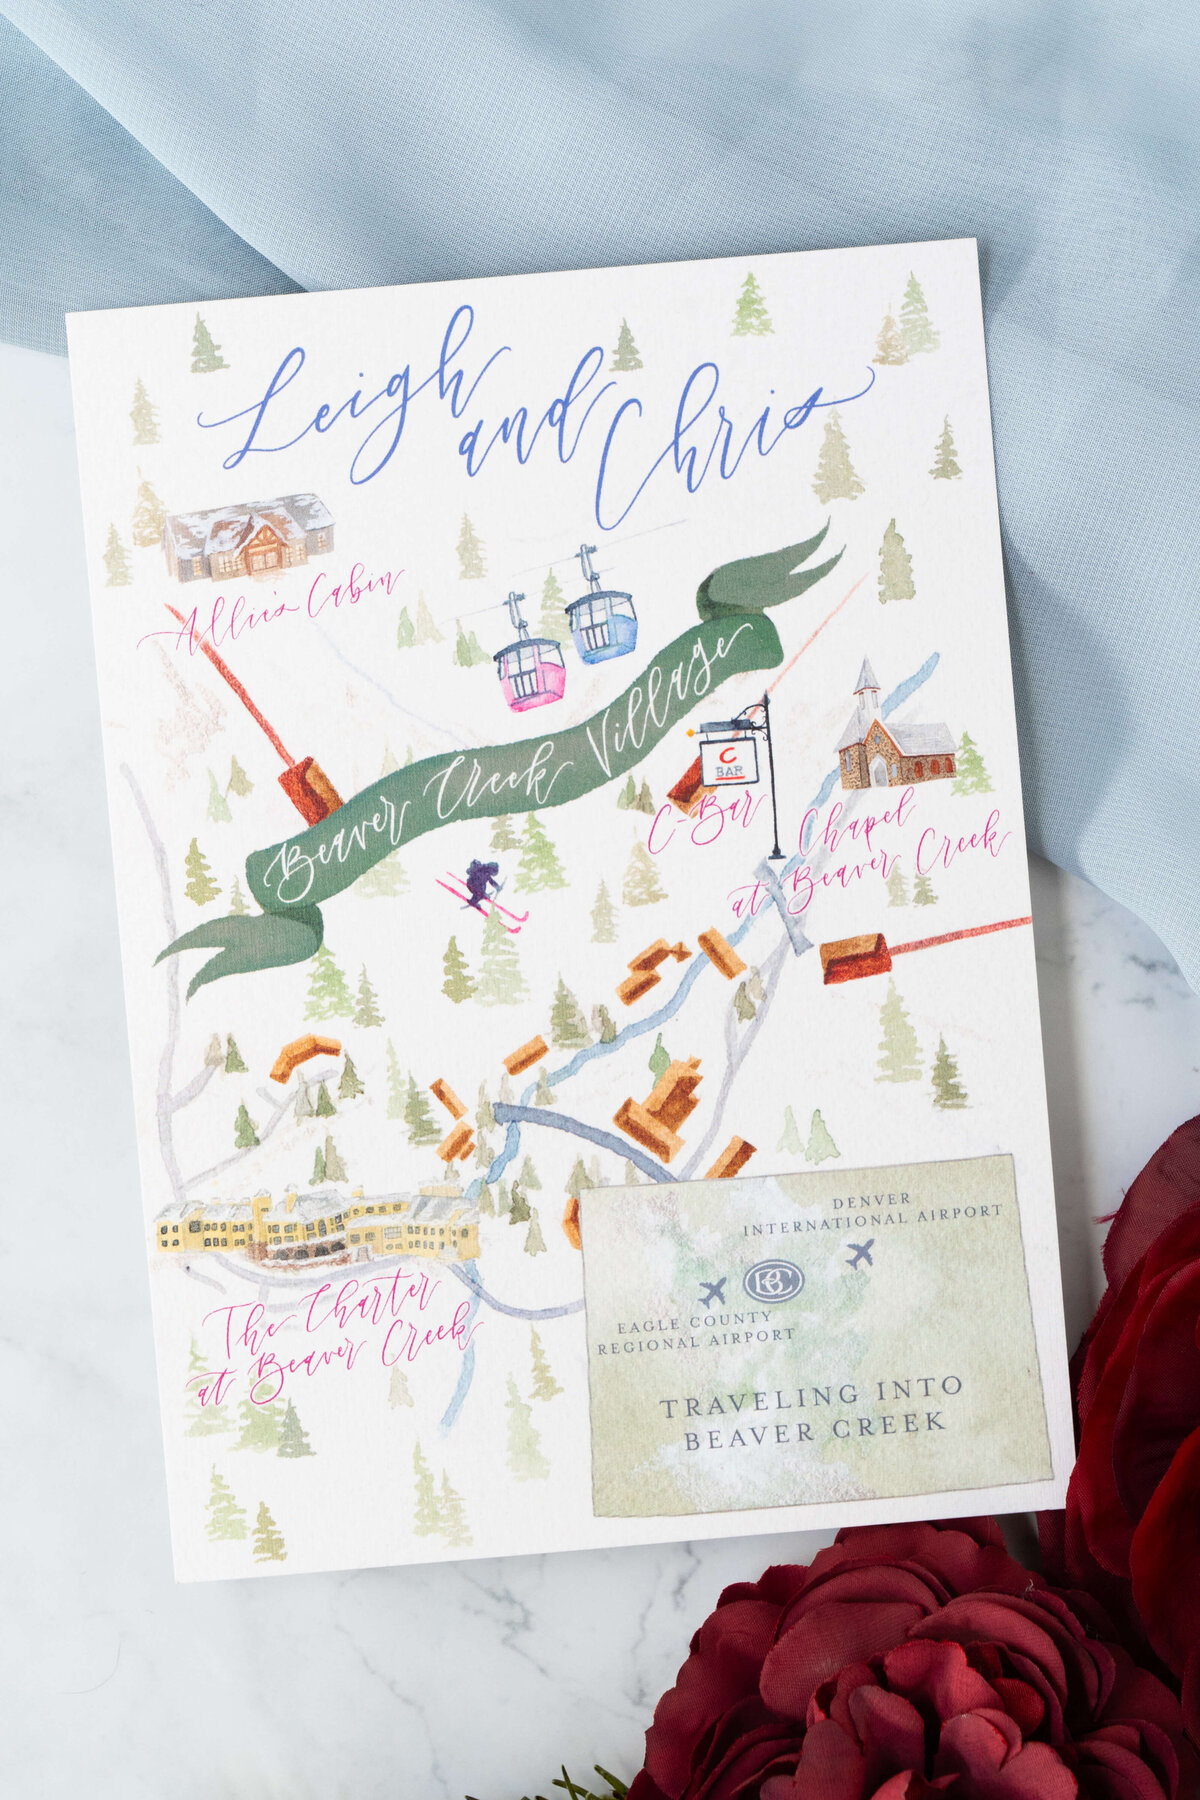 Leigh
and Chris
Allie's Cabin
Beaver Creek Village
C
BAR
C-Bar
Chapel
at Beaver Creek
The Charter
at Beaver Creek
DENVER
INTERNATIONAL AIRPORT
BC
EAGLE COUNTY
REGIONAL AIRPORT
TRAVELING INTO
BEAVER CREEK